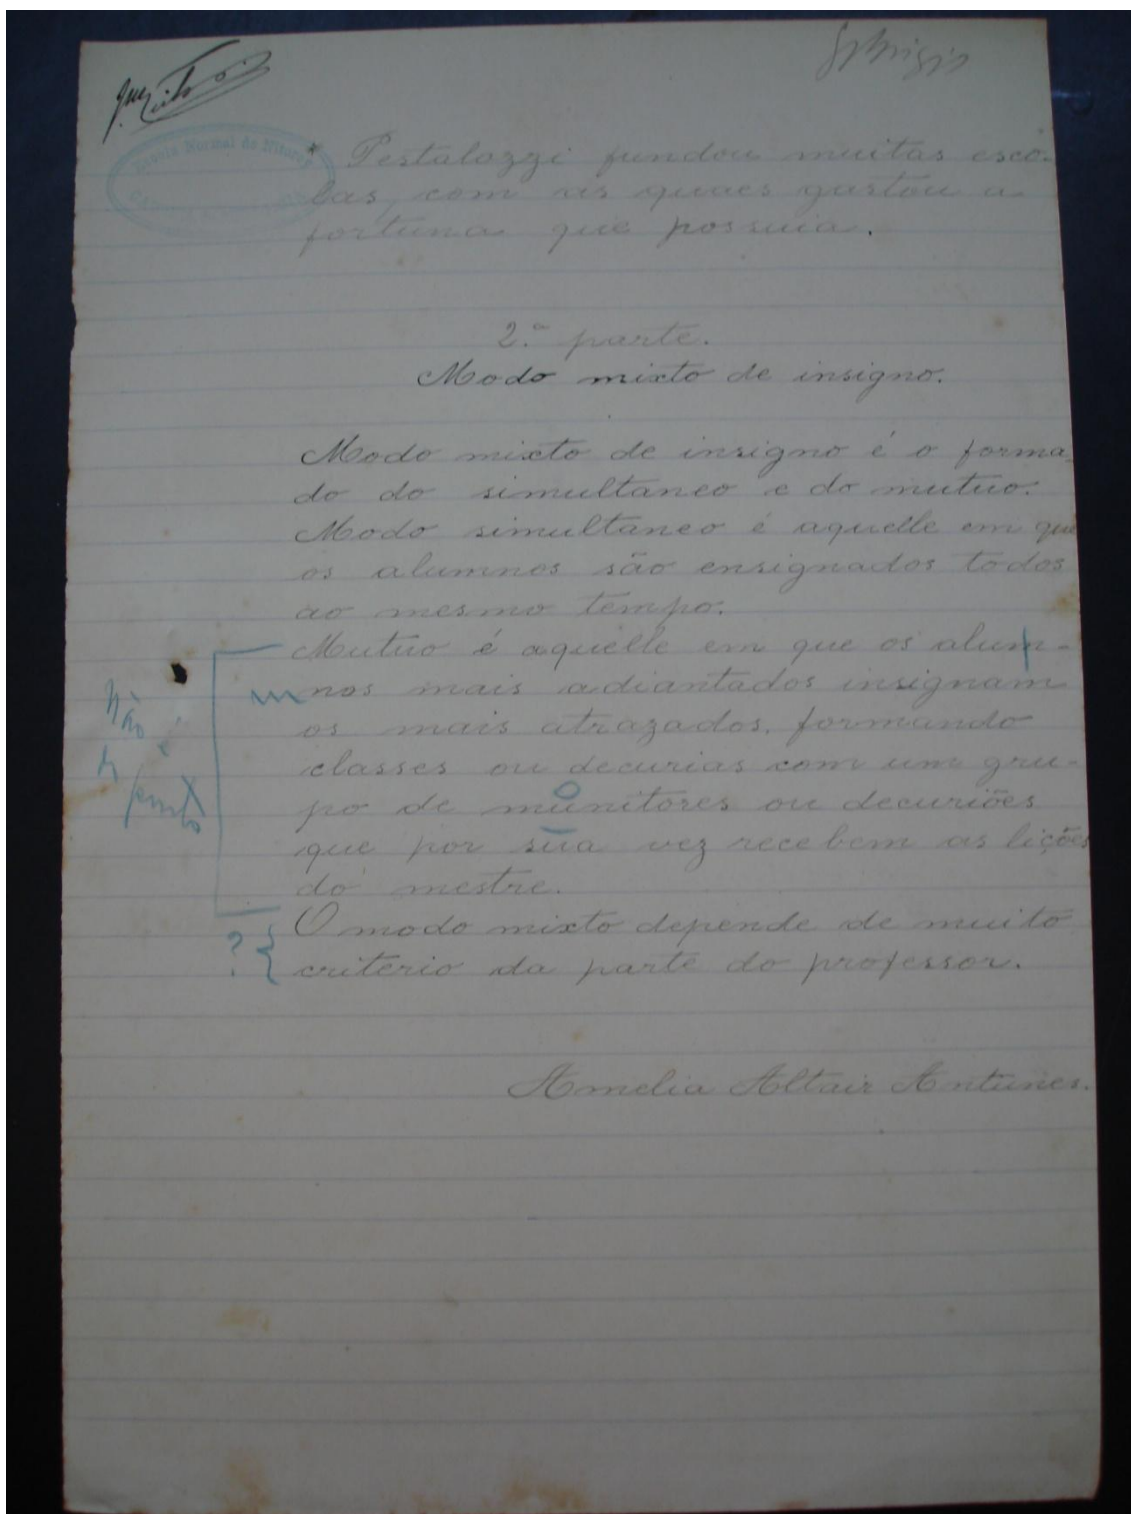 Escola Normal de
Pestalozzi fundou muitas esco-
las, com as quaes gastou a
fortuna que possuia.
2.a parte.
Modo mixto de insigno.
Modo mixto de insigno é o forma-
do do simultaneo e do mutuo.
Modo simultaneo é aquelle em que
os alumnos são ensignados todos
ao mesmo tempo.
Mutuo é aquelle em que os alum-
m nos mais adiantados insignam
os mais atrazados, formando
classes ou decurias com um gru-
o
po de munitores ou decuriões
que por sua vez recebem as lições
do mestre.
Não
é
? O modo mixto depende de muito
criterio da parte do professor.
Amelia Altair Antunes.